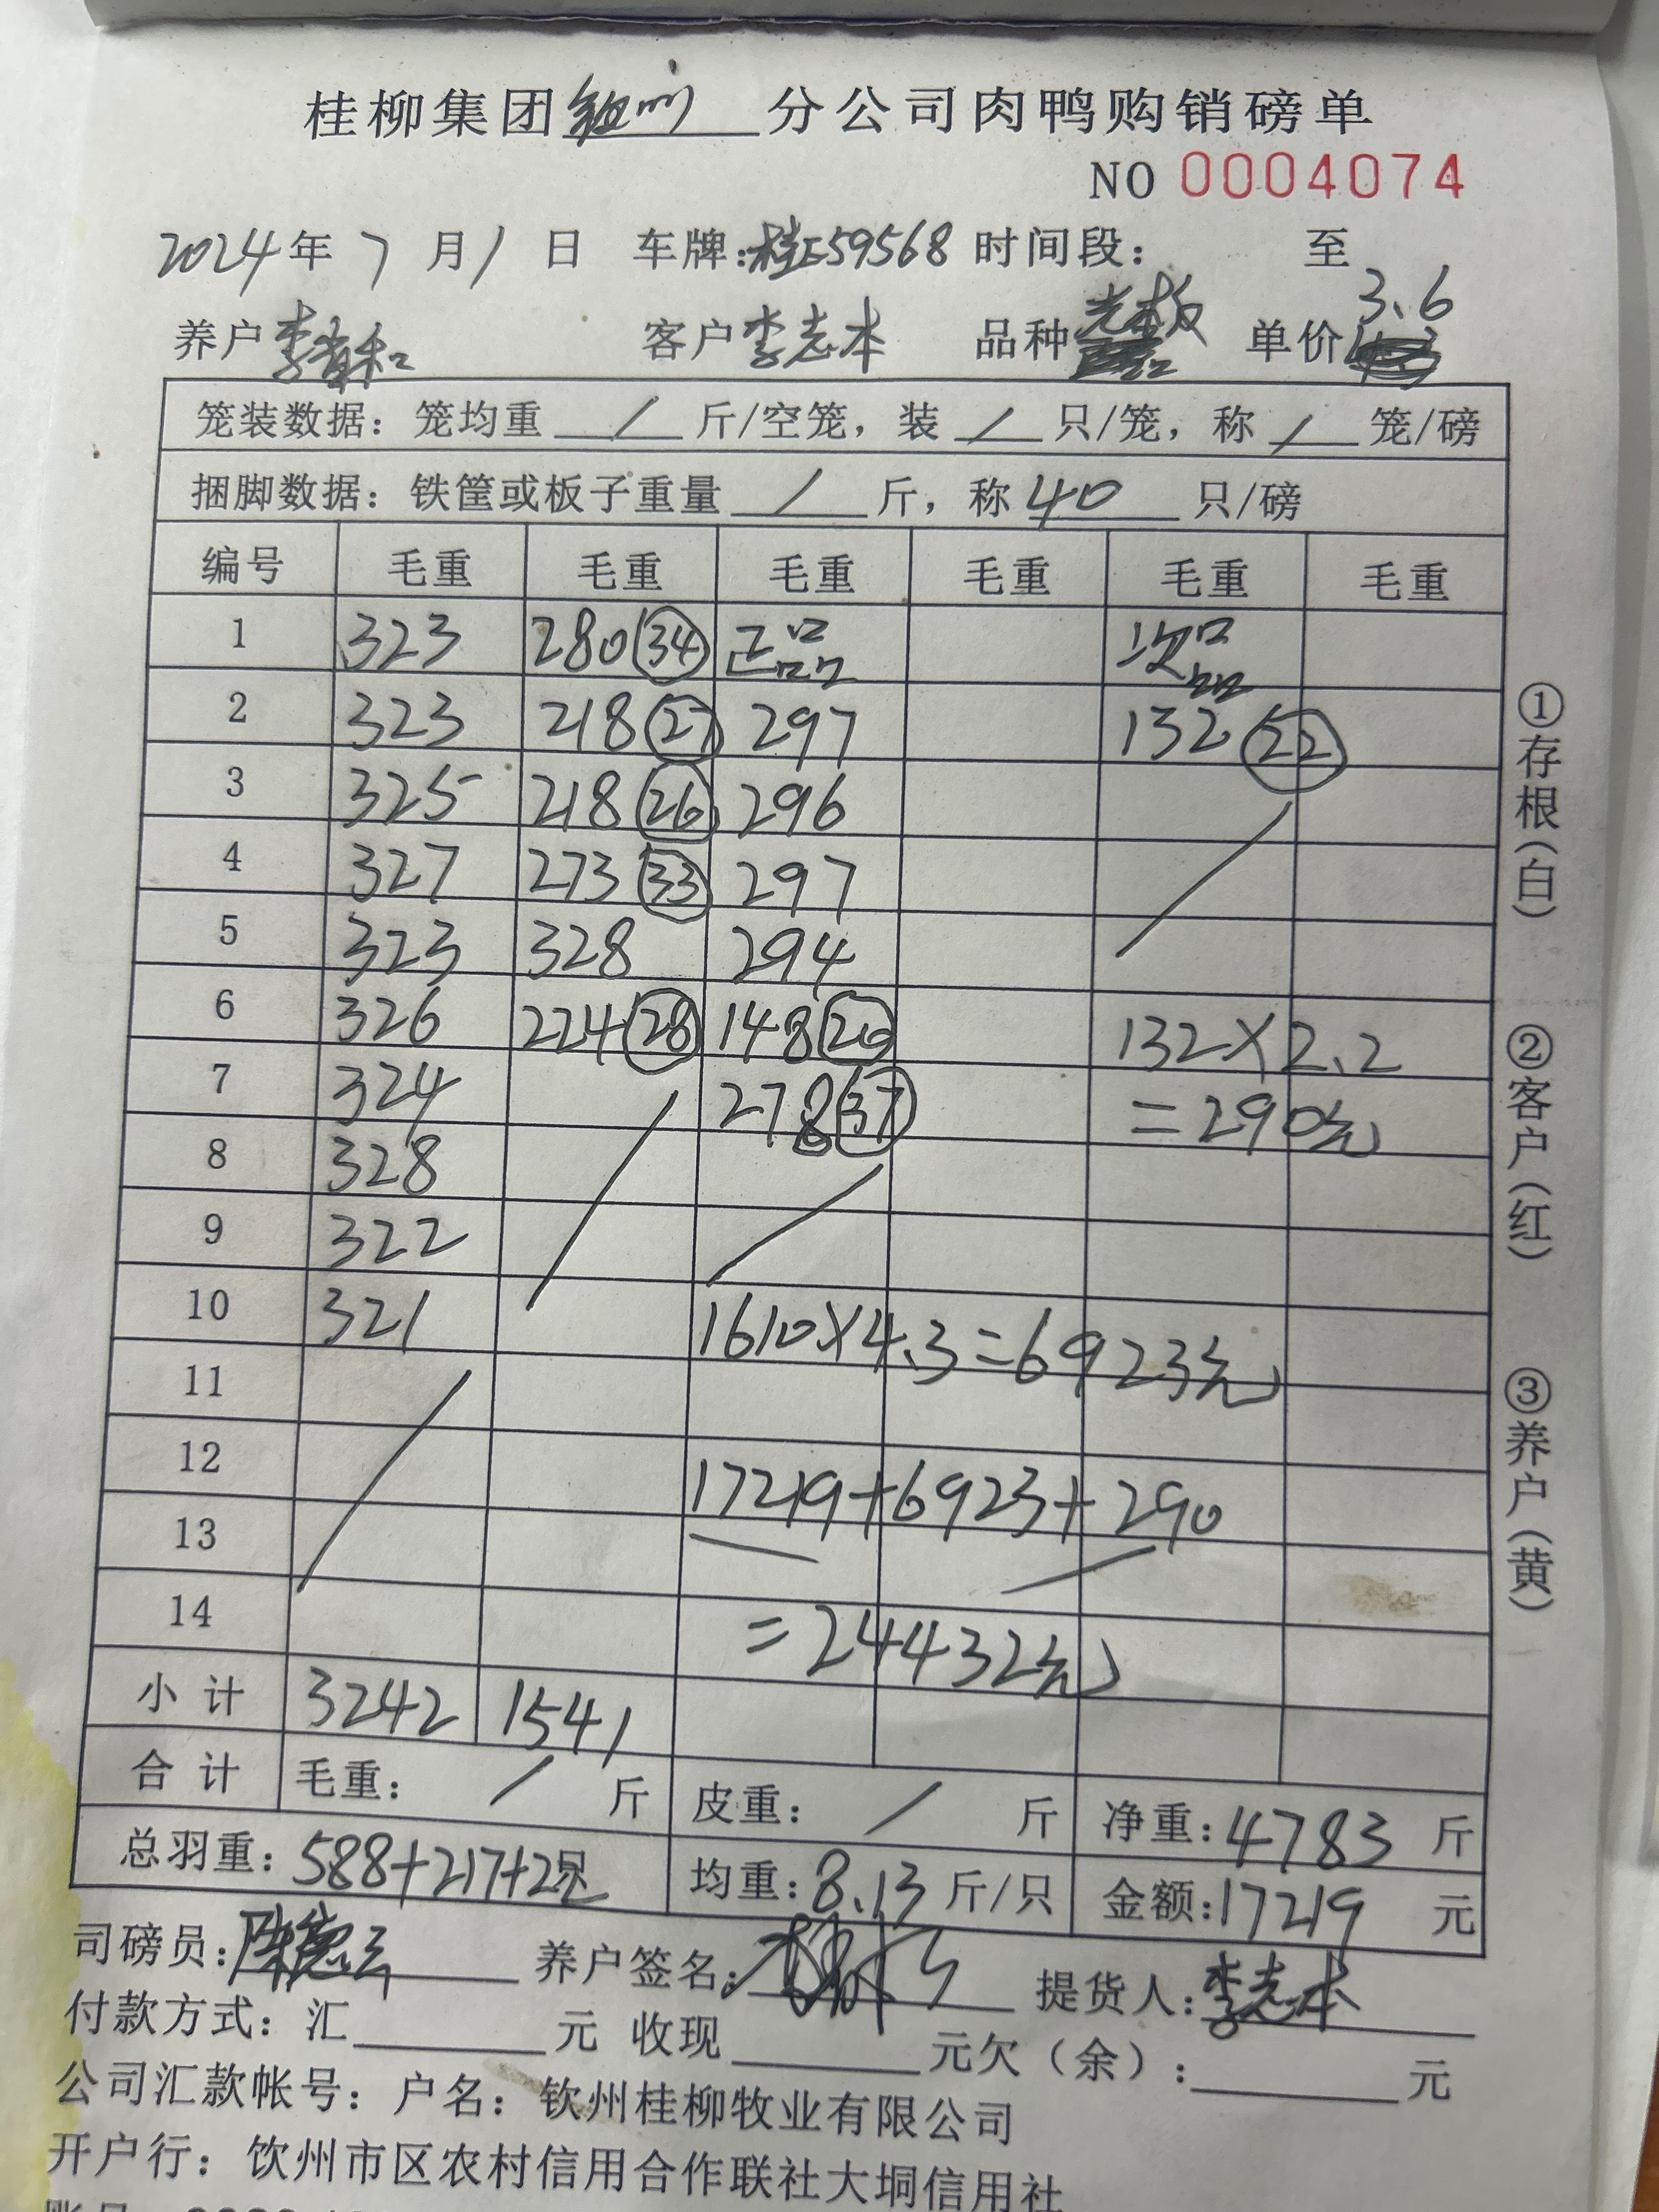 桂柳集团钦州分公司肉鸭购销磅单
NO 0004074
2024年7月1日 车牌:桂E59568 时间段: 至
养户李 和 客户李志本 品种 单价3.6
笼装数据: 笼均重 / 斤/空笼, 装 / 只/笼, 称 / 笼/磅
捆脚数据: 铁筐或板子重量 / 斤, 称 40 只/磅
编号 毛重 毛重 毛重 毛重 毛重 毛重
1 323 280 34 正品 次品
2 323 218 27 297 132 22
3 325 218 26 296
4 327 273 33 297
5 323 328 294
6 326 224 28 148 20 132×2.2
7 324 278 37 =290元
8 328
9 322
10 321 1610×4.3=6923元
11
12 17219+6923+290
13
14 =24432元
小计 3242 1541
合计 毛重: / 斤 皮重: / 斤 净重:4783 斤
总羽重: 588+217+2只 均重:8.13斤/只 金额:17219 元
司磅员: 养户签名: 提货人:李志本
付款方式: 汇 元 收现 元欠(余): 元
公司汇款帐号: 户名: 钦州桂柳牧业有限公司
开户行: 钦州市区农村信用合作联社大垌信用社
①存根(白) ②客户(红) ③养户(黄)